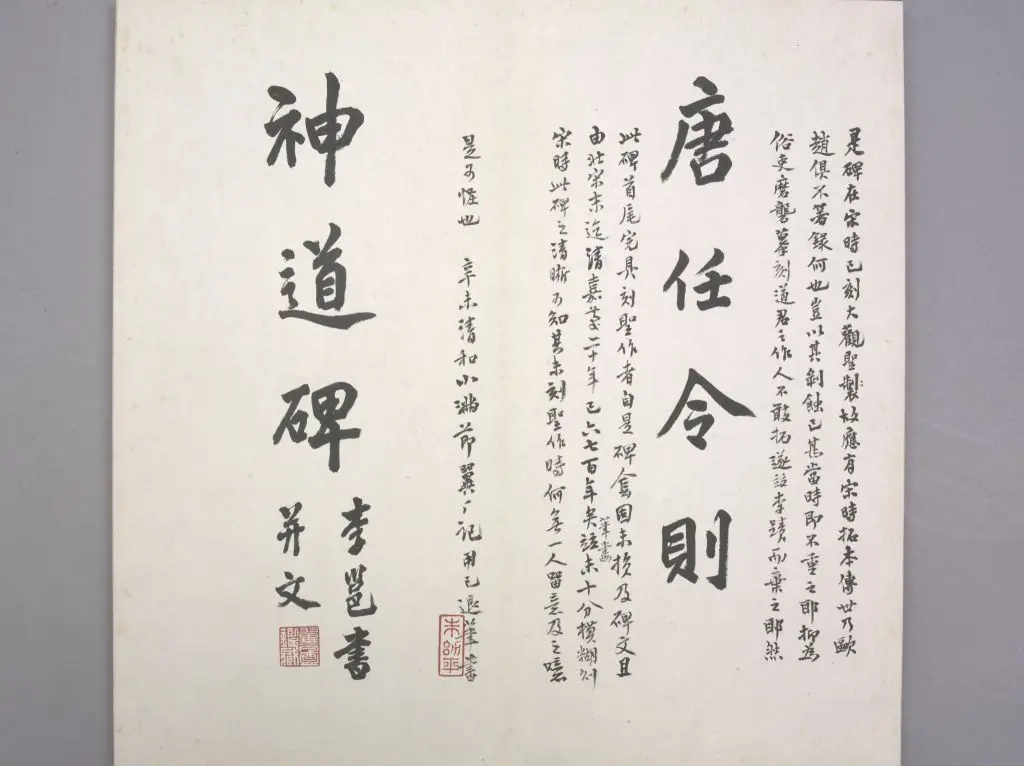 是碑在宋時已刻大觀聖製故應有宋時拓本傳世乃歐
趙俱不箸錄何也豈以其剝蝕已甚當時即不重之耶抑為
俗吏磨礱摹刻道君之作人不敢拓遂李蹟而棄之耶然
唐任令則
此碑首尾完具刻聖作者自是碑因未損及碑文且
由北宋末迄清嘉慶二十年已六七百年矣筆畫未十分模糊則
宋時此碑之清晰可知其未刻聖作時何無一人留意及之噫
是可怪也 辛未清和小滿節翼广記用已退筆書
朱幼平
神道碑
李邕書
并文